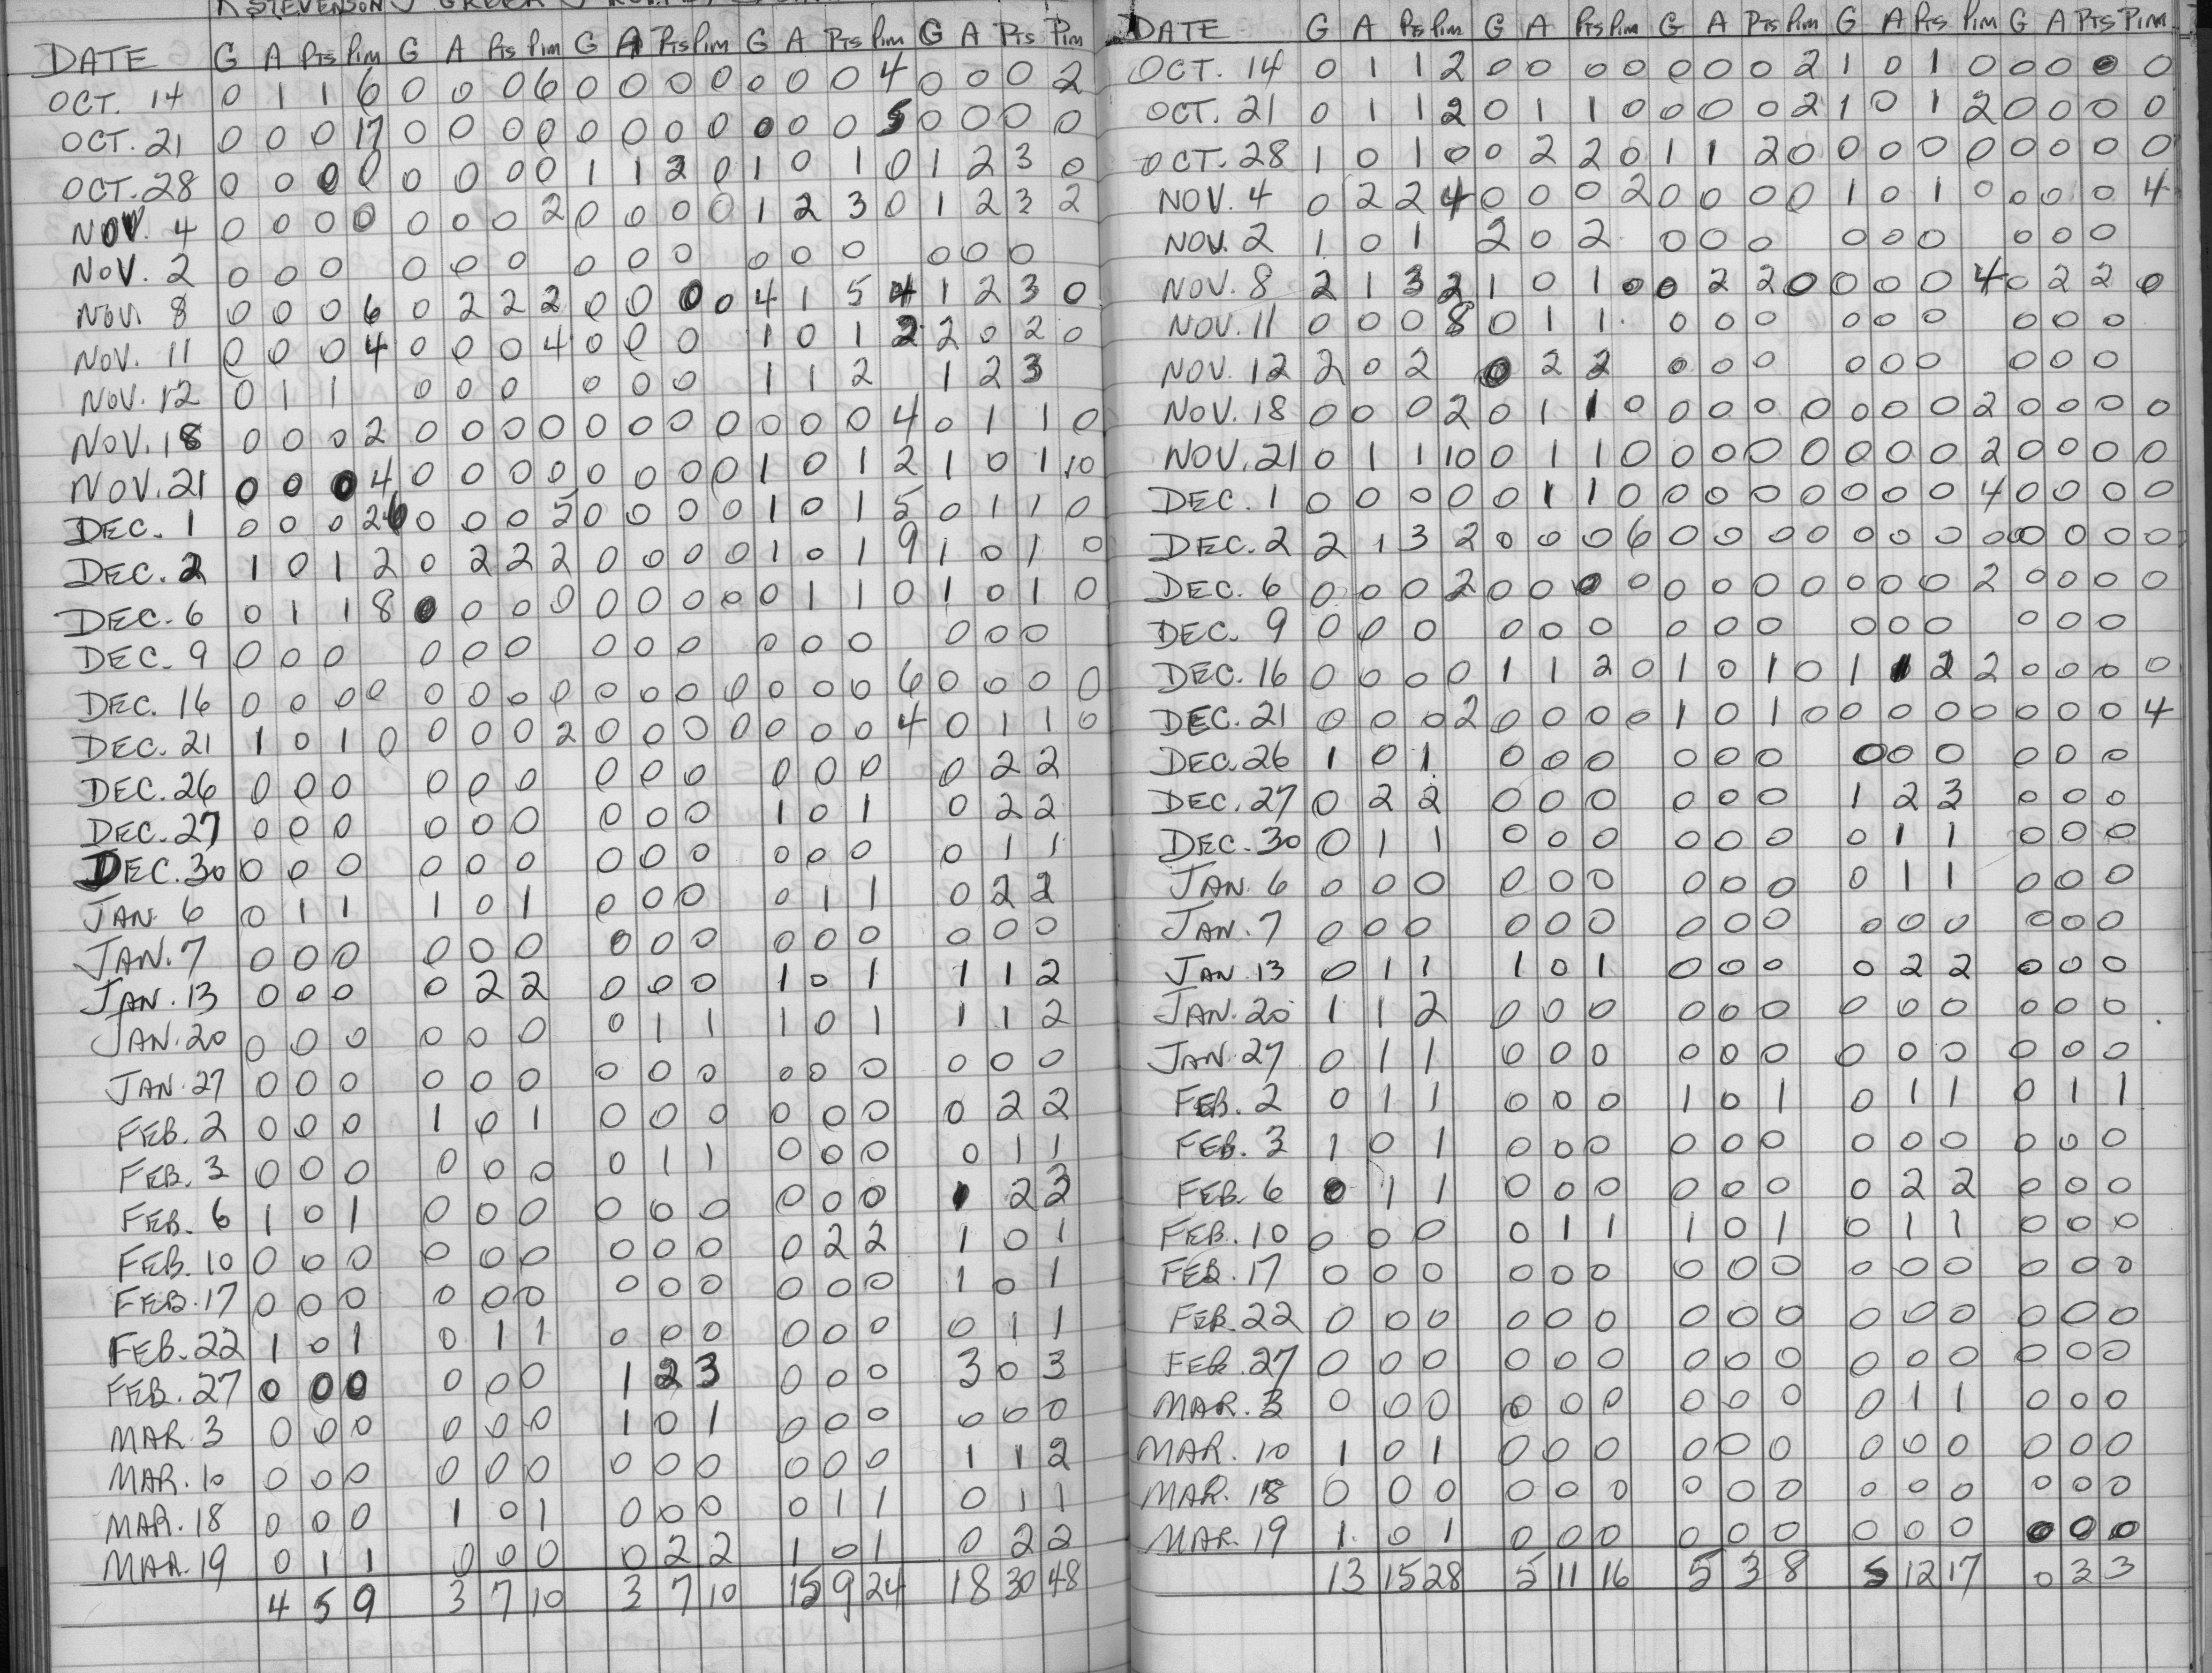 K STEVENSON J GREER J
DATE G A Pts Pim G A Pts Pim G A Pts Pim G A Pts Pim G A Pts Pim
OCT. 14 0 1 1 6 0 0 0 6 0 0 0 0 0 0 0 4 0 0 0 2
OCT. 21 0 0 0 17 0 0 0 0 0 0 0 0 0 0 0 5 0 0 0 0
OCT. 28 0 0 0 0 0 0 0 0 1 1 2 0 1 0 1 0 1 2 3 0
NOV. 4 0 0 0 0 0 0 0 2 0 0 0 0 1 2 3 0 1 2 3 2
NOV. 2 0 0 0 0 0 0 0 0 0 0 0 0 0 0 0
NOV. 8 0 0 0 6 0 2 2 2 0 0 0 0 4 1 5 4 1 2 3 0
NOV. 11 0 0 0 4 0 0 0 4 0 0 0 1 0 1 2 2 0 2 0
NOV. 12 0 1 1 0 0 0 0 0 0 1 1 2 1 2 3
NOV. 18 0 0 0 2 0 0 0 0 0 0 0 0 0 0 0 4 0 1 1 0
NOV. 21 0 0 0 4 0 0 0 0 0 0 0 0 1 0 1 2 1 0 1 10
DEC. 1 0 0 0 26 0 0 0 5 0 0 0 0 1 0 1 5 0 1 1 0
DEC. 2 1 0 1 2 0 2 2 2 0 0 0 0 1 0 1 9 1 0 1 0
DEC. 6 0 1 1 8 0 0 0 0 0 0 0 0 0 1 1 0 1 0 1 0
DEC. 9 0 0 0 0 0 0 0 0 0 0 0 0 0 0 0
DEC. 16 0 0 0 0 0 0 0 0 0 0 0 0 0 0 0 6 0 0 0 0
DEC. 21 1 0 1 0 0 0 0 2 0 0 0 0 0 0 0 4 0 1 1 0
DEC. 26 0 0 0 0 0 0 0 0 0 0 0 0 0 2 2
DEC. 27 0 0 0 0 0 0 0 0 0 1 0 1 0 2 2
DEC. 30 0 0 0 0 0 0 0 0 0 0 0 0 0 1 1
JAN. 6 0 1 1 1 0 1 0 0 0 0 1 1 0 2 2
JAN. 7 0 0 0 0 0 0 0 0 0 0 0 0 0 0 0
JAN. 13 0 0 0 0 2 2 0 0 0 1 0 1 1 1 2
JAN. 20 0 0 0 0 0 0 0 1 1 1 0 1 1 1 2
JAN. 27 0 0 0 0 0 0 0 0 0 0 0 0 0 0 0
FEB. 2 0 0 0 1 0 1 0 0 0 0 0 0 0 2 2
FEB. 3 0 0 0 0 0 0 0 1 1 0 0 0 0 1 1
FEB. 6 1 0 1 0 0 0 0 0 0 0 0 0 1 2 3
FEB. 10 0 0 0 0 0 0 0 0 0 0 2 2 1 0 1
FEB. 17 0 0 0 0 0 0 0 0 0 0 0 0 1 0 1
FEB. 22 1 0 1 0 1 1 0 0 0 0 0 0 0 1 1
FEB. 27 0 0 0 0 0 0 1 2 3 0 0 0 3 0 3
MAR. 3 0 0 0 0 0 0 1 0 1 0 0 0 0 0 0
MAR. 10 0 0 0 0 0 0 0 0 0 0 0 0 1 1 2
MAR. 18 0 0 0 1 0 1 0 0 0 0 1 1 0 1 1
MAR. 19 0 1 1 0 0 0 0 2 2 1 0 1 0 2 2
4 5 9 3 7 10 3 7 10 15 9 24 18 30 48
DATE G A Pts Pim G A Pts Pim G A Pts Pim G A Pts Pim G A Pts Pim
OCT. 14 0 1 1 2 0 0 0 0 0 0 0 2 1 0 1 0 0 0 0 0
OCT. 21 0 1 1 2 0 1 1 0 0 0 0 2 1 0 1 2 0 0 0 0
OCT. 28 1 0 1 0 0 2 2 0 1 1 2 0 0 0 0 0 0 0 0 0
NOV. 4 0 2 2 4 0 0 0 2 0 0 0 0 1 0 1 0 0 0 0 4
NOV. 2 1 0 1 2 0 2 0 0 0 0 0 0 0 0 0
NOV. 8 2 1 3 2 1 0 1 0 0 2 2 0 0 0 0 4 0 2 2 0
NOV. 11 0 0 0 8 0 1 1 0 0 0 0 0 0 0 0 0
NOV. 12 2 0 2 0 2 2 0 0 0 0 0 0 0 0 0
NOV. 18 0 0 0 2 0 1 1 0 0 0 0 0 0 0 0 2 0 0 0 0
NOV. 21 0 1 1 10 0 1 1 0 0 0 0 0 0 0 0 2 0 0 0 0
DEC. 1 0 0 0 0 0 1 1 0 0 0 0 0 0 0 0 4 0 0 0 0
DEC. 2 2 1 3 2 0 0 0 6 0 0 0 0 0 0 0 0 0 0 0 0
DEC. 6 0 0 0 2 0 0 0 0 0 0 0 0 0 0 0 2 0 0 0 0
DEC. 9 0 0 0 0 0 0 0 0 0 0 0 0 0 0 0
DEC. 16 0 0 0 0 1 1 2 0 1 0 1 0 1 1 2 2 0 0 0 0
DEC. 21 0 0 0 2 0 0 0 0 1 0 1 0 0 0 0 0 0 0 0 4
DEC. 26 1 0 1 0 0 0 0 0 0 0 0 0 0 0 0
DEC. 27 0 2 2 0 0 0 0 0 0 1 2 3 0 0 0
DEC. 30 0 1 1 0 0 0 0 0 0 0 1 1 0 0 0
JAN. 6 0 0 0 0 0 0 0 0 0 0 1 1 0 0 0
JAN. 7 0 0 0 0 0 0 0 0 0 0 0 0 0 0 0
JAN. 13 0 1 1 1 0 1 0 0 0 0 2 2 0 0 0
JAN. 20 1 1 2 0 0 0 0 0 0 0 0 0 0 0 0
JAN. 27 0 1 1 0 0 0 0 0 0 0 0 0 0 0 0
FEB. 2 0 1 1 0 0 0 1 0 1 0 1 1 0 1 1
FEB. 3 1 0 1 0 0 0 0 0 0 0 0 0 0 0 0
FEB. 6 0 1 1 0 0 0 0 0 0 0 2 2 0 0 0
FEB. 10 0 0 0 0 1 1 1 0 1 0 1 1 0 0 0
FEB. 17 0 0 0 0 0 0 0 0 0 0 0 0 0 0 0
FEB. 22 0 0 0 0 0 0 0 0 0 0 0 0 0 0 0
FEB. 27 0 0 0 0 0 0 0 0 0 0 0 0 0 0 0
MAR. 3 0 0 0 0 0 0 0 0 0 0 1 1 0 0 0
MAR. 10 1 0 1 0 0 0 0 0 0 0 0 0 0 0 0
MAR. 18 0 0 0 0 0 0 0 0 0 0 0 0 0 0 0
MAR. 19 1 0 1 0 0 0 0 0 0 0 0 0 0 0 0
13 15 28 5 11 16 5 3 8 5 12 17 0 3 3